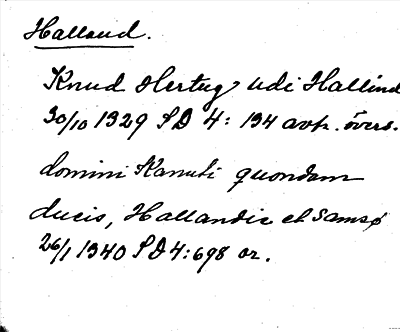 Halland.
Knud Hertug udi Hallind
30/10 1329 SD 4: 134 avkr. övers.
domini Kanuti quondam
ducis, Hallandie et Samsø
26/1 1340 SD 4:698 or.